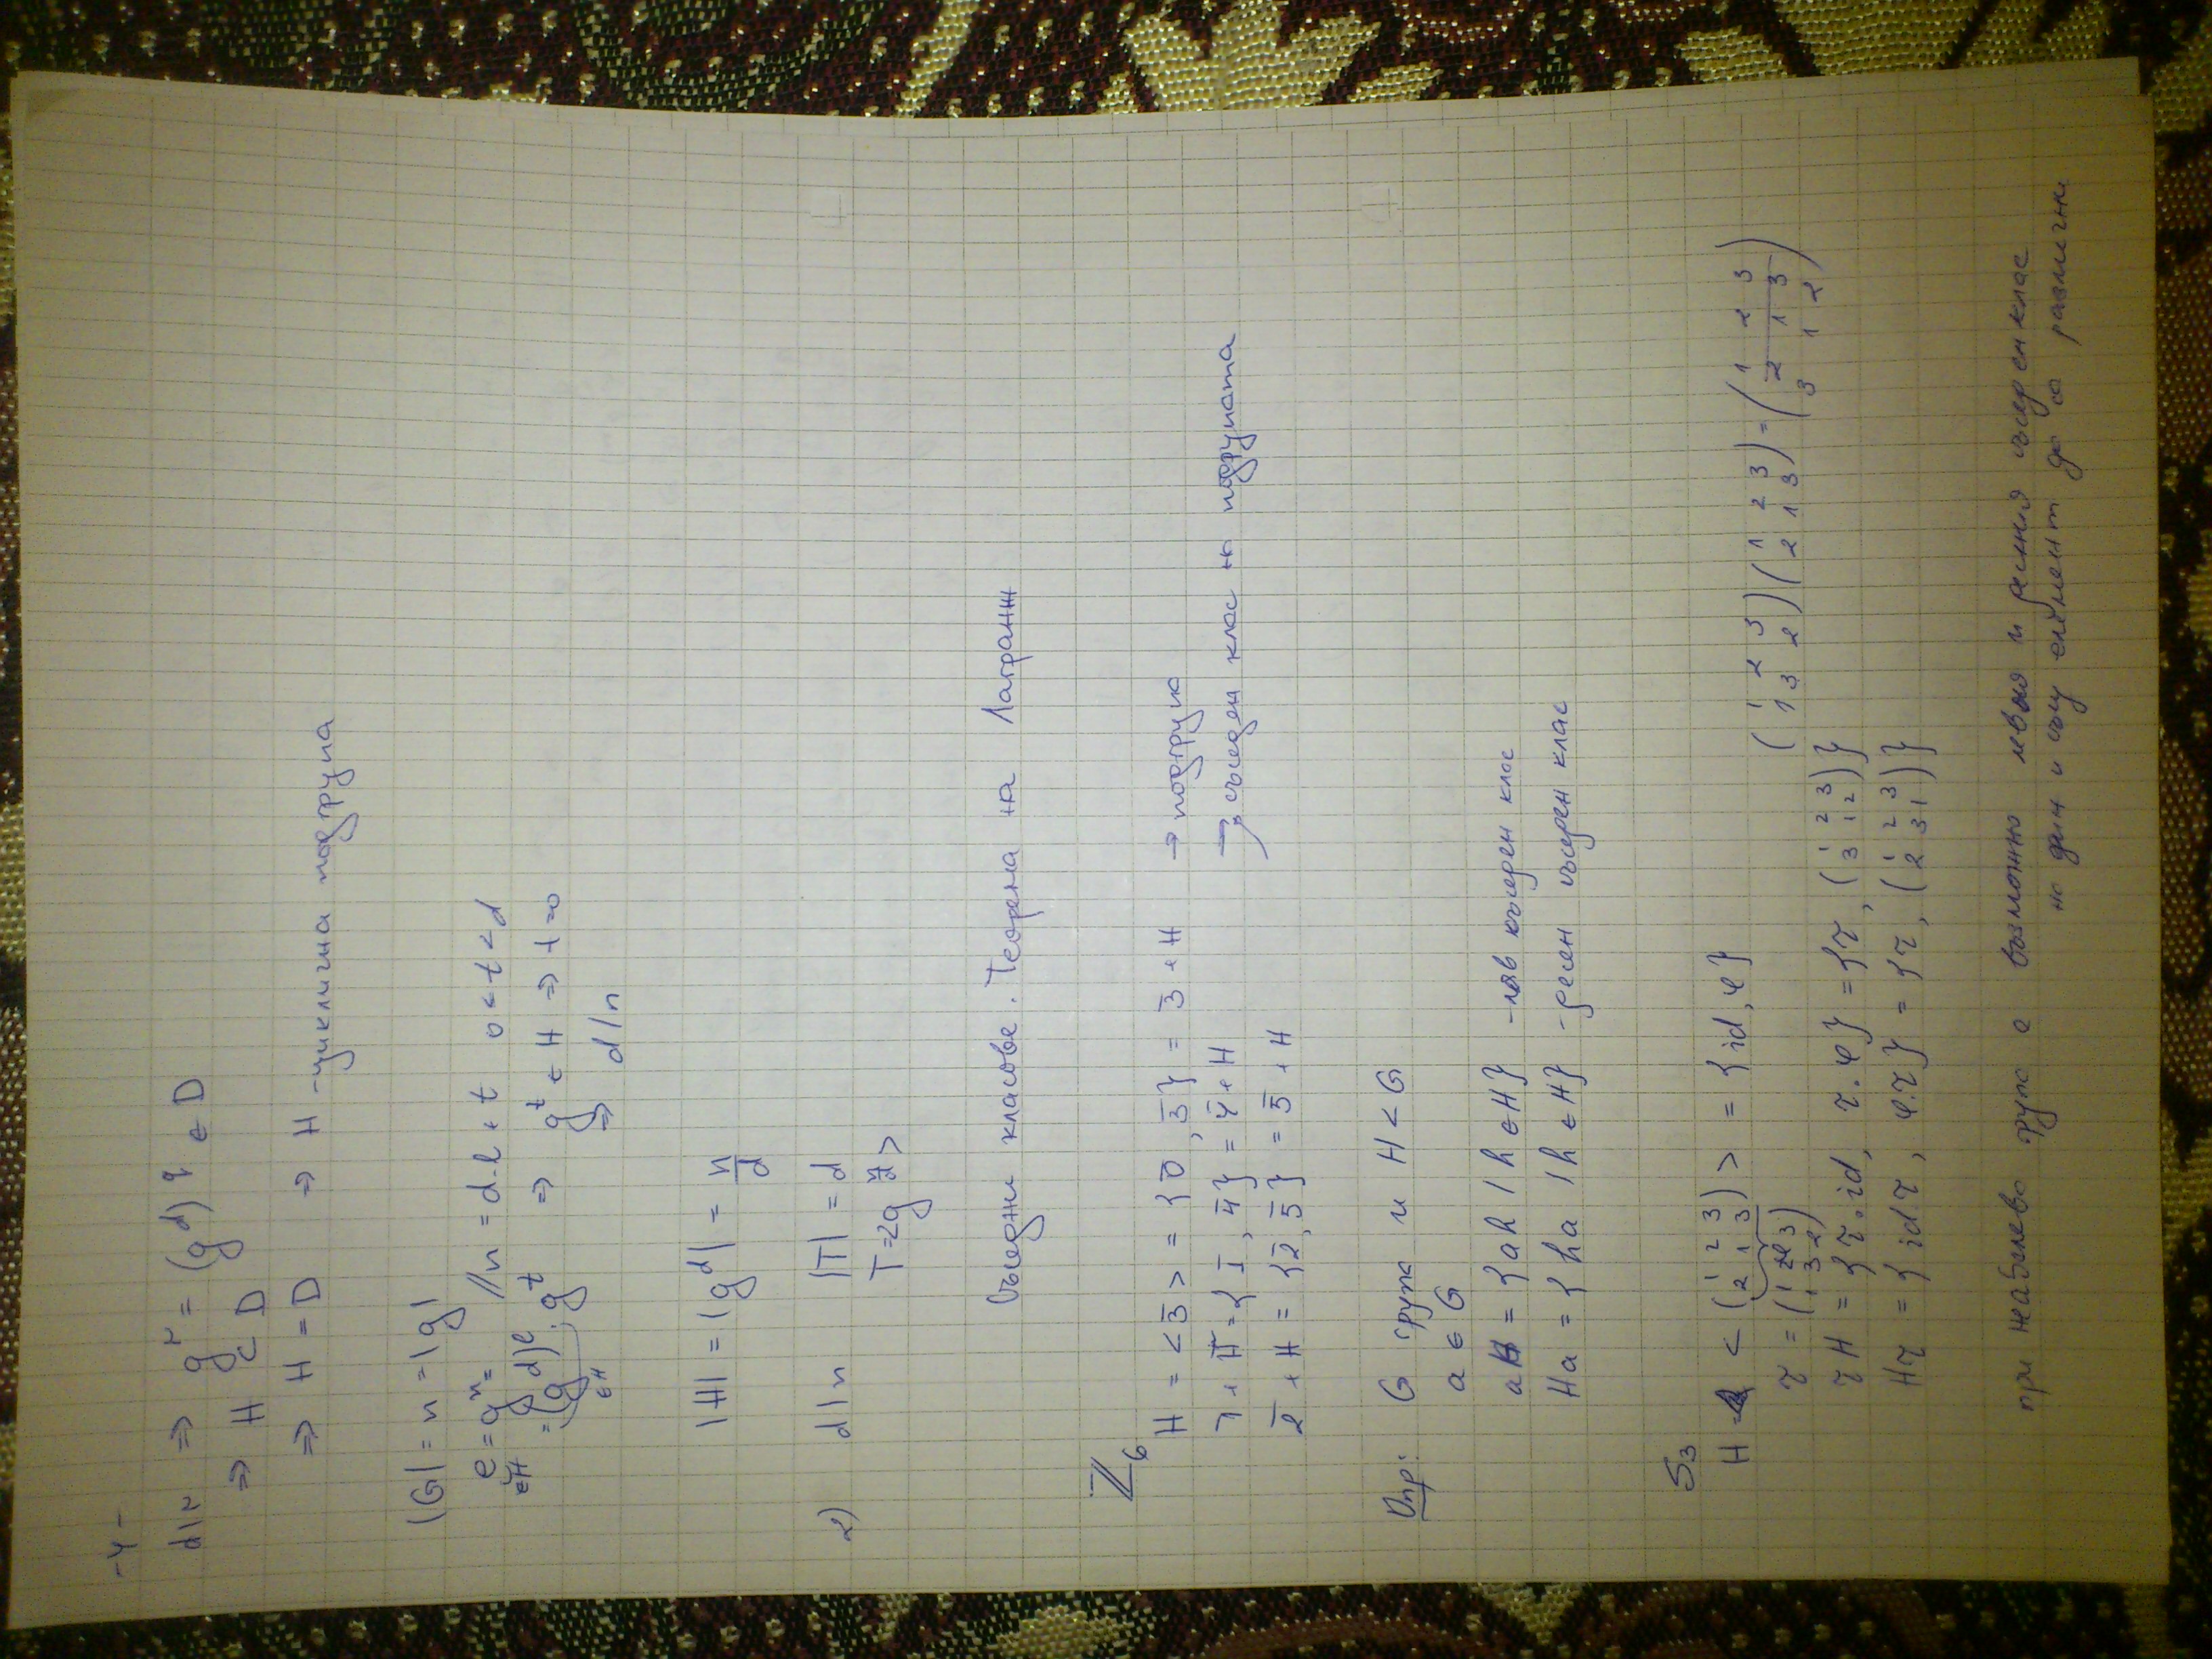 -4-
d|r ⇒ g^r = (g^d)^q ∈ D
⇒ H ⊂ D
⇒ H = D ⇒ H - циклична подгрупа
|G| = n = |g|
e = g^n = //n = d.l + t 0 < t < d
∈H = (g^d)^l . g^t ⇒ g^t ∈ H ⇒ t=0
∈H ⇒ d/n
|H| = |g^d| = n/d
2) d|n |T| = d
T = <g^(n/d)>
Съседни класове. Теорема на Лагранж
ℤ6
H = <3̄> = {0̄, 3̄} = 3̄ + H → подгрупа
1̄ + H = {1̄, 4̄} = 4̄ + H → съседен клас на подгрупата
2̄ + H = {2̄, 5̄} = 5̄ + H
Опр: G група и H < G
a ∈ G
aH = {ah | h ∈ H} - ляв съседен клас
Ha = {ha | h ∈ H} - десен съседен клас
S3
H = < (1 2 3 / 2 1 3) > = {id, φ}
τ = (1 2 3 / 1 3 2) (1 2 3 / 1 3 2) (1 2 3 / 2 1 3) = (1 2 3 / 2 1 3 / 3 1 2)
τH = {τ.id, τ.φ} = {τ, (1 2 3 / 3 1 2)}
Hτ = {id.τ, φ.τ} = {τ, (1 2 3 / 2 3 1)}
при неабелева група е възможно левия и десния съседен клас
на един и същ елемент да са различни